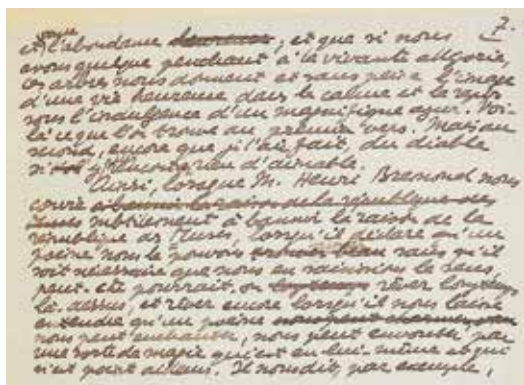 7.
et l'abondance heureuse, et que si nous
avons quelque penchant à la vivante allégorie,
ces arbres nous donnent et sans peine l'image
d'une vie heureuse dans le calme et le
sous l'indulgence d'un magnifique azur. Voi-
là ce que l'on trouve au premier vers. Mais au
second, encore que je l'aie fait, du diable
si j'y rien d'aimable.
Ainsi, lorsque M. Henri Bremond nous
convie à bannir la raison de la république des
Muses subtilement à bannir la raison de la
république des Muses, lorsqu'il déclare qu'un
poème nous le pouvois trouver beau sans qu'il
soit nécessaire que nous en saisissions le sens,
peut-être pourrait-on longtemps rêver longtemps
là-dessus, et rêver encore lorsqu'il nous laisse
entendre qu'un poème nous peut charmer,
nous peut enchanter, nous peut envoûter par
une sorte de magie qui est en lui-même et qui
n'est point ailleurs. Il nous dit, par exemple,